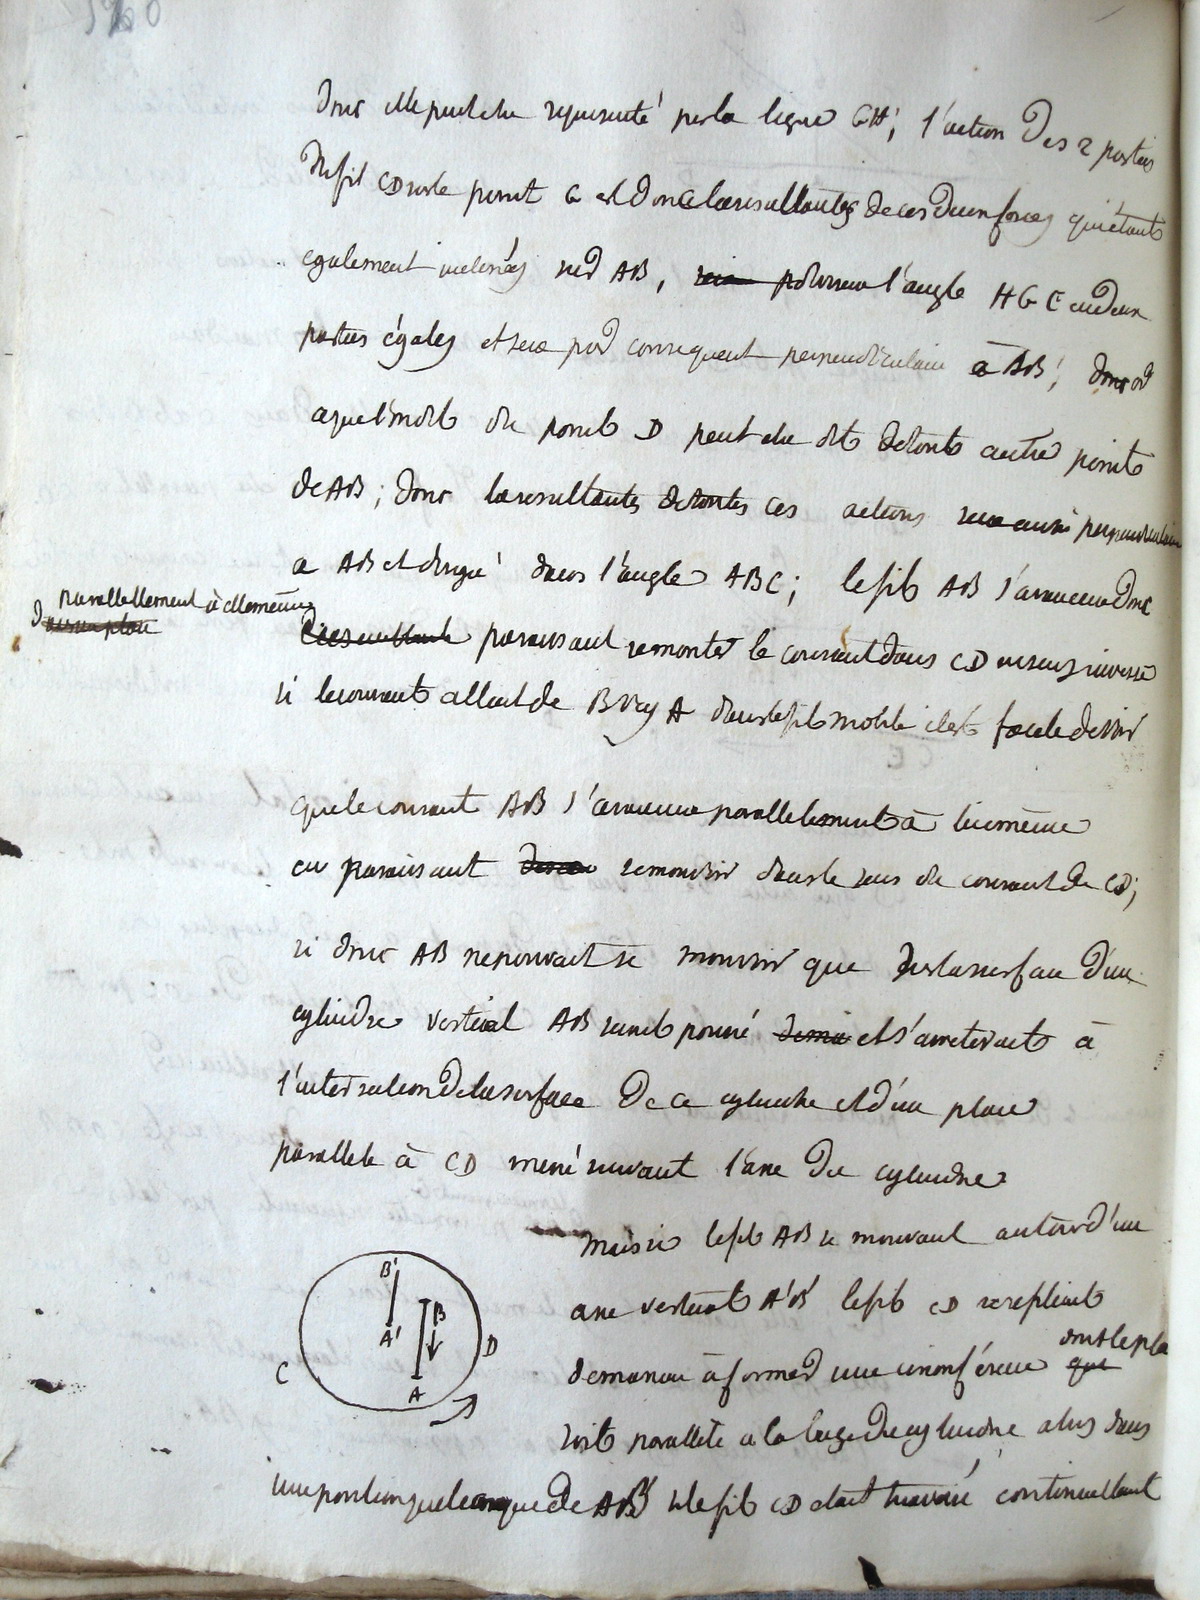 donc elle peut etre représenté par la ligne GH; l'action des 2 parties
du fil CD sur le point G est donc la resultantes de ces deux forces qui étant
egalement inclinés sur AB, divisera l'angle HGE en deux
parties égales et sera par consequent perpendiculaire à AB;
a que l'on dit du point D peut etre dit de tout autre point
de AB; donc la resultantes de toutes ces actions sera aussi perpendiculaire
a AB et dirigé dans l'angle ABC; le fil AB s'avancera donc
parallellement à ellememe
paraissant remonter le courant dans CD en sens inverse
si le courant allait de B vers A dans le fil mobile il est facile de voir
que le courant AB s'avancera parallelement à lui même
en paraissant dans le sens du courant de CD;
si donc AB ne pouvait se mouvoir que sur la surface d'un
cylindre vertical AB serait poussé et s'arreterait à
l'intersection de la surface de ce cylindre et d'un plan
parallele à CD mené suivant l'axe du cylindre
Mais si le fil AB se mouvant autour d'un
axe vertical A'B' le fil CD se repliait
de maniere à former une circonférence dont le plan
soit parallele a la base du cylindre alors dans
une position quelconque de AB le fil CD étant traversé continuellement
B'
A'
B
A
C
D